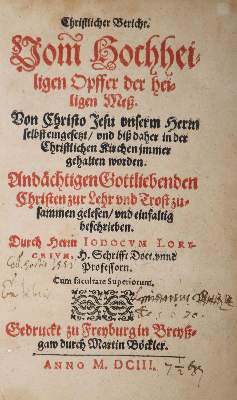 Christlicher Bericht.
Vom Hochhei-
ligen Opffer der hei-
ligen Meß.
Von Christo Jesu unserm Herrn
selbst eingesetzt/ und biß daher in der
Christlichen Kirchen immer
gehalten worden.
Andächtigen Gottliebenden
Christen zur Lehr und Trost zu-
sammen gelesen/ und einfaltig
beschrieben.
Durch Herrn IODOCVM LORI-
CHIVM, H. Schrifft Doct. unnd
Professorn.
Cum facultate Superiorum.
Gedruckt zu Freyburg in Breyß-
gaw durch Martin Böckler.
ANNO M. DCIII.